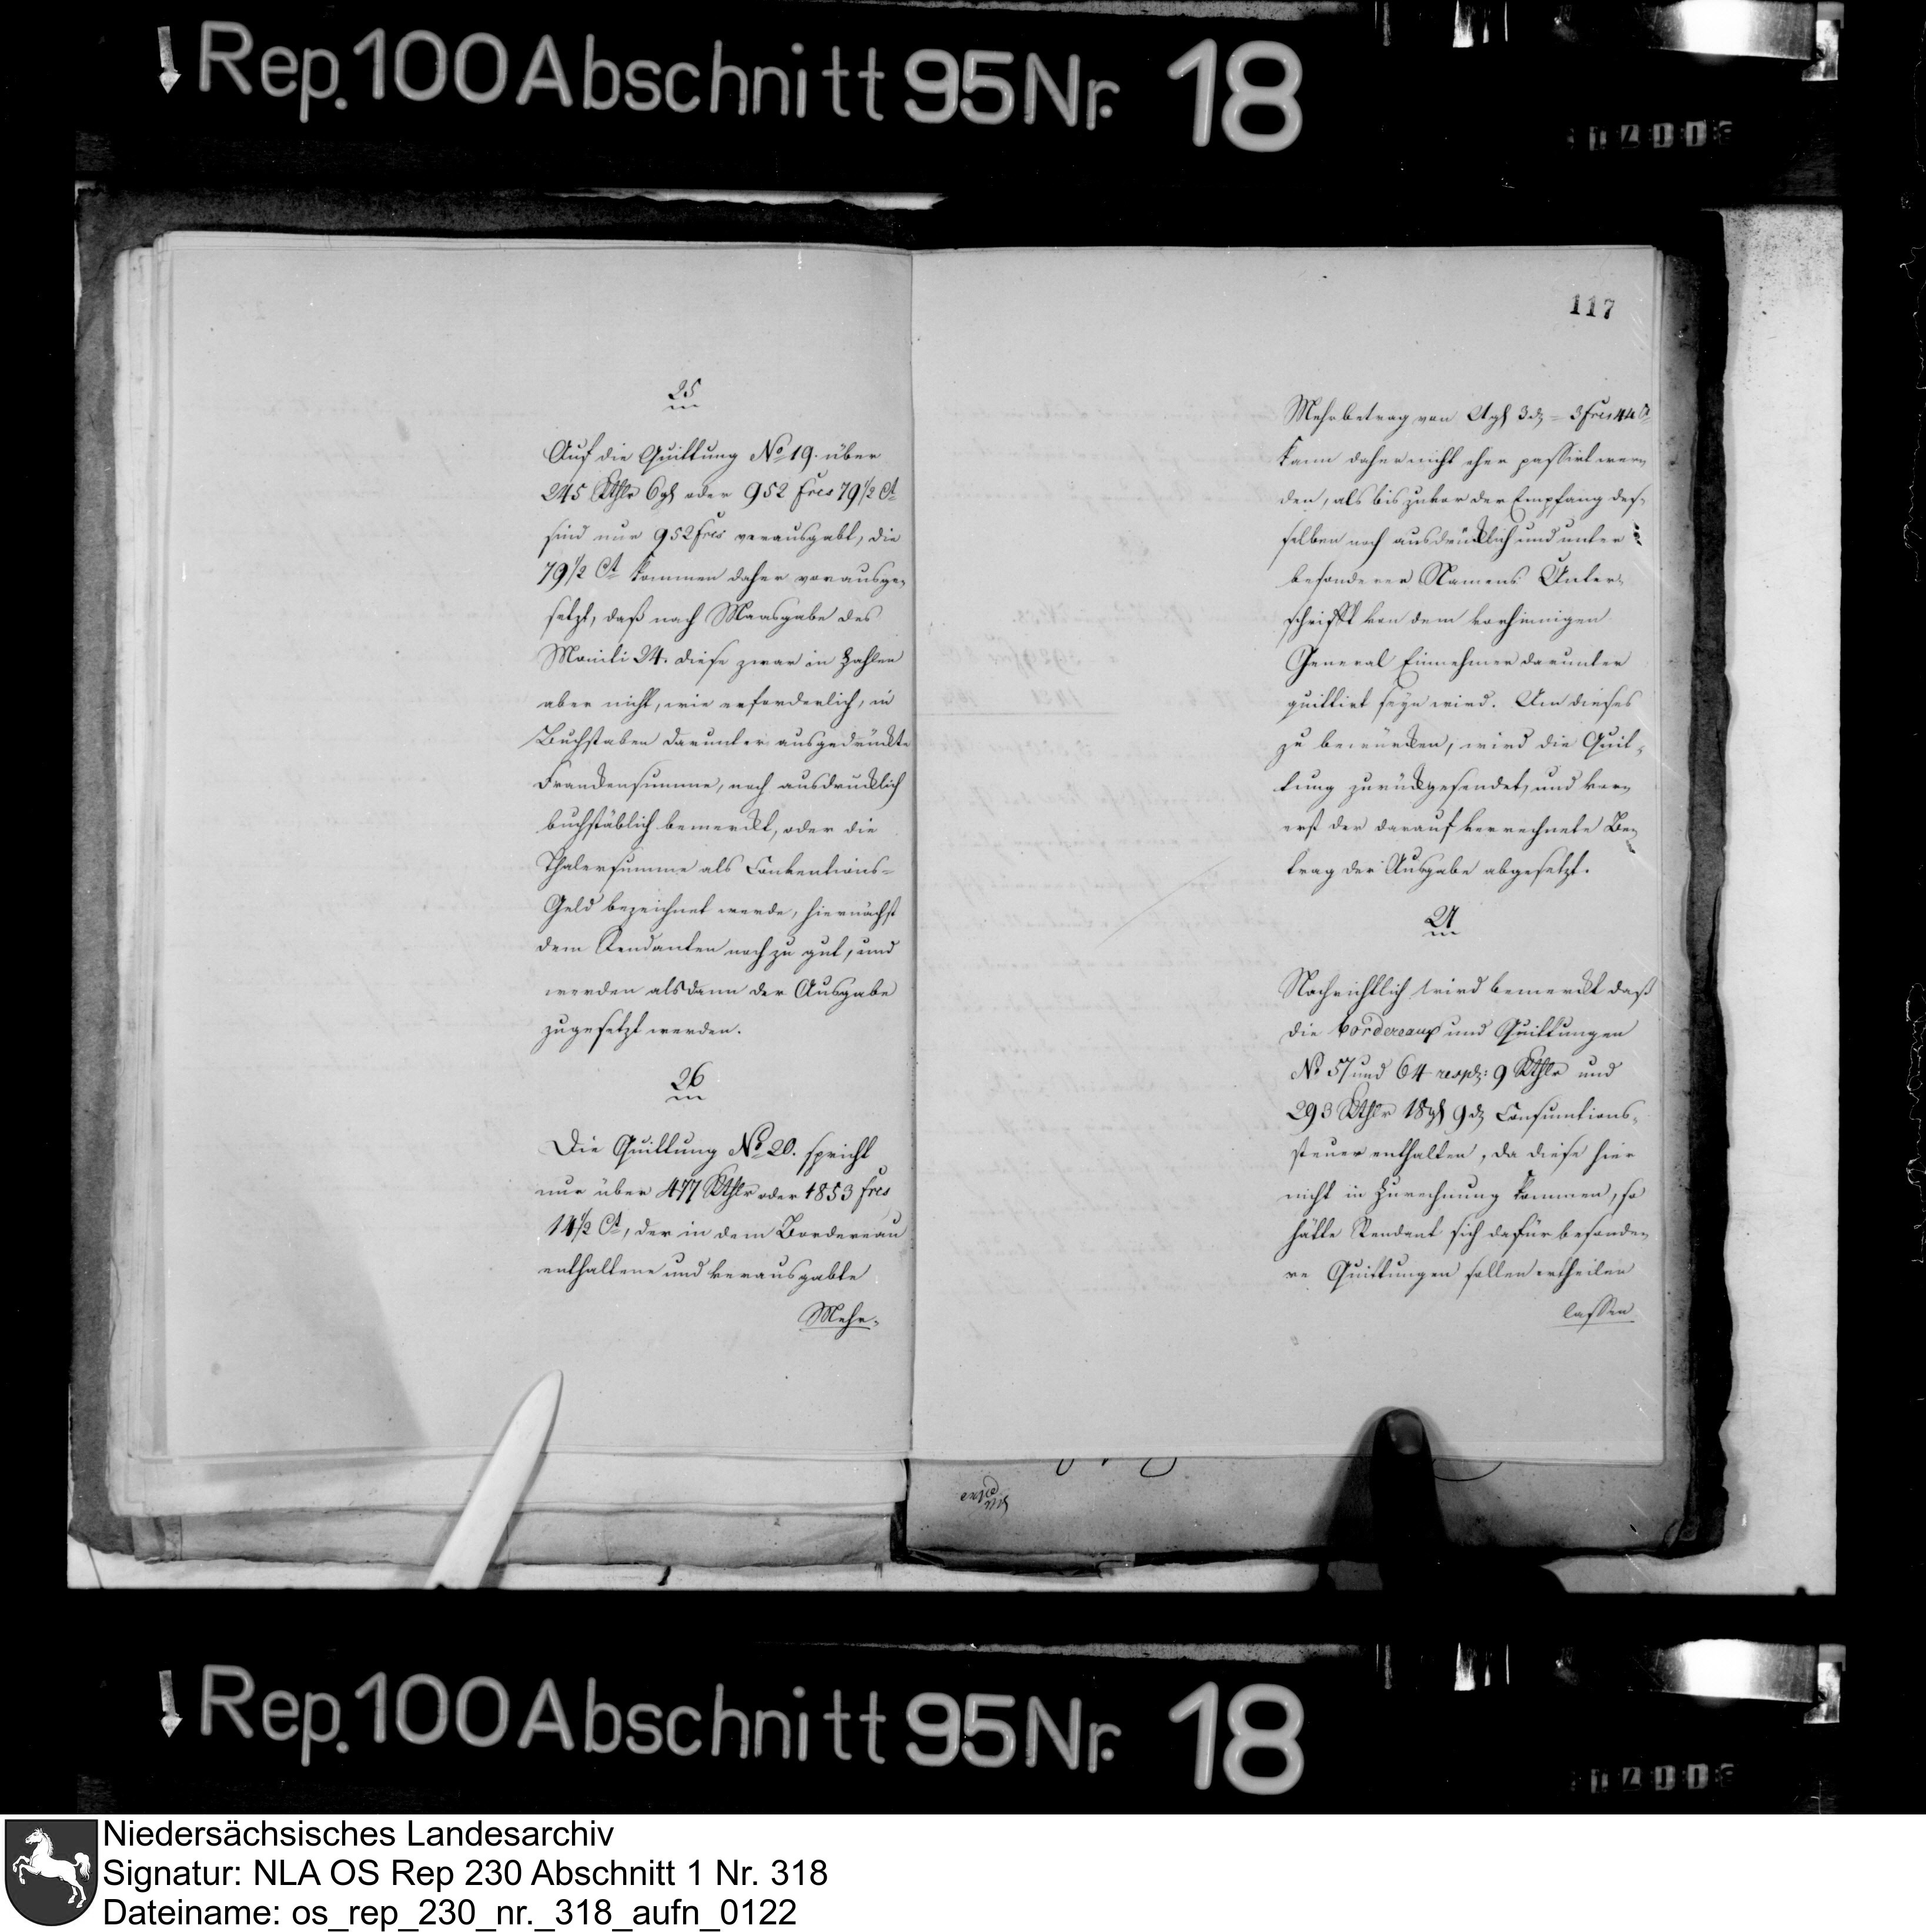 Rep. 100 Abschnitt 95 Nr. 18
25
Auf die Quittung No 19. über
245 Rthlr 6 gl oder 952 frcs 79 1/2 Ct
sind nur 952 frcs verausgabt, die
79 1/2 Ct kommen daher vorausge-
setzt, daß nach Maasgabe des
Moniti 24. diese zwar in Zahlen
aber nicht, wie erforderlich, in
Buchstaben darunter ausgedrückte
Frankensumme, noch ausdrücklich
buchstäblich bemerckt, oder die
Thalersumme als Conventions-
Geld bezeichnet werde, hiernächst
dem Rendanten noch zu gut, und
werden alsdann der Ausgabe
zugesetzt werden.
26
Die Quittung No 20. spricht
nur über 477 Rthlr oder 1853 frcs
14 1/2 Ct, der in dem Bordereau
enthaltene und verausgabte
Mehr-
117
Mehrbetrag von 21 gl 3 d = 3 frcs 44 Ct
kann daher nicht eher passirt wer-
den, als bis zuvor der Empfang des-
selben noch ausdrücklich und unter
besonderer Namens Unter-
schrifft von dem vorhinnigen
General Einnehmer darunter
quittirt seyn wird. Um dieses
zu bewürcken, wird die Quit-
tung zurückgesendet, und vor-
erst der darauf verrechnete Be-
trag der Ausgabe abgesetzt.
27
Nachrichtlich wird bemerckt daß
die bordereaux und Quittungen
No 57 und 64 resp: 9 Rthlr und
293 Rthlr 18 gl 9 d Consumtions-
steuer enthalten, da diese hier
nicht in Zurechnung kommen, so
hätte Rendant sich dafür besonde-
re Quittungen sollen ertheilen
lassen
Rep. 100 Abschnitt 95 Nr. 18
Niedersächsisches Landesarchiv
Signatur: NLA OS Rep 230 Abschnitt 1 Nr. 318
Dateiname: os_rep_230_nr._318_aufn_0122